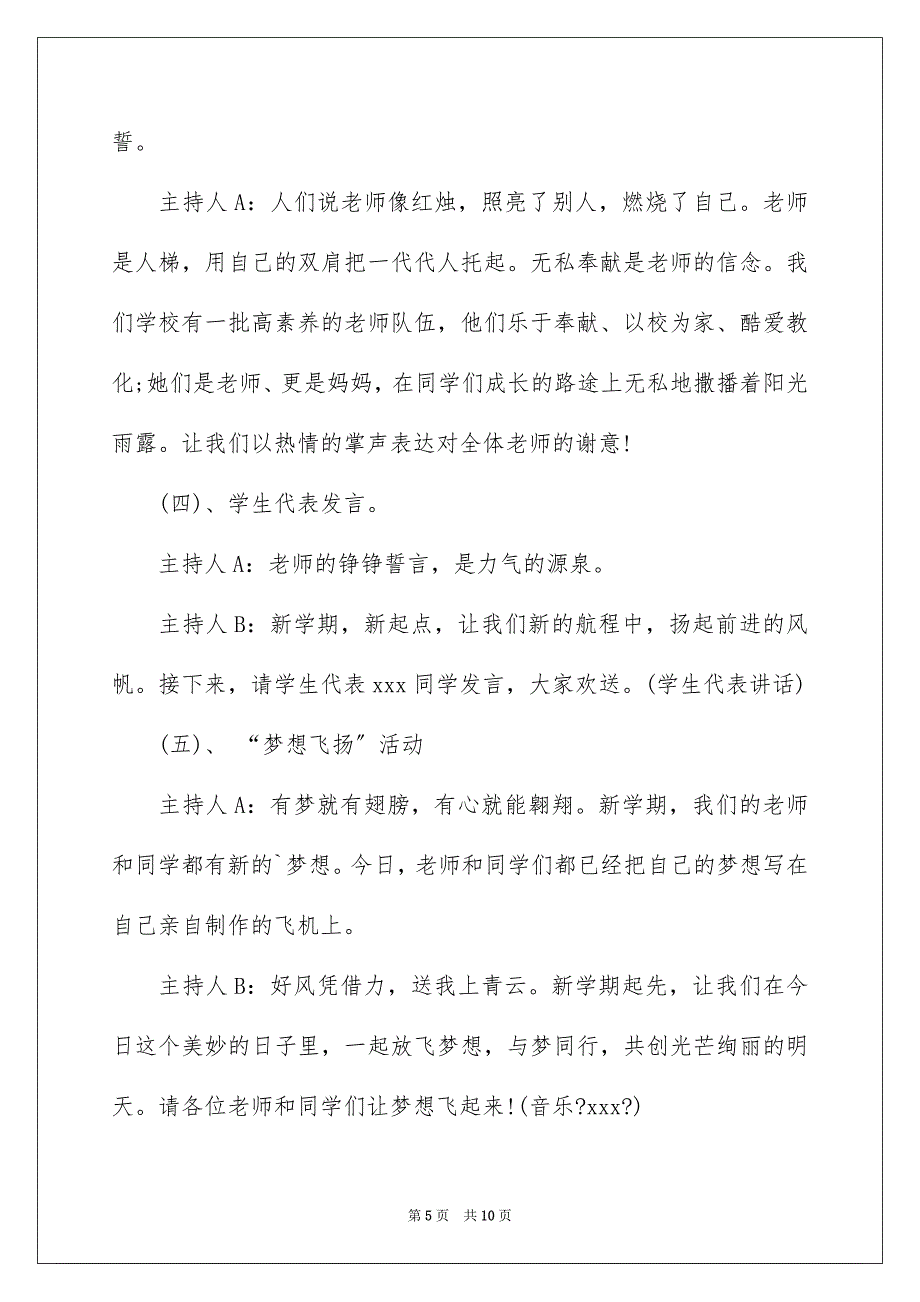 誓。
主持人A：人们说老师像红烛，照亮了别人，燃烧了自己。老师
是人梯，用自己的双肩把一代代人托起。无私奉献是老师的信念。我
们学校有一批高素养的老师队伍，他们乐于奉献、以校为家、酷爱教
化;她们是老师、更是妈妈，在同学们成长的路途上无私地撒播着阳光
雨露。让我们以热情的掌声表达对全体老师的谢意!
(四)、学生代表发言。
主持人A：老师的铮铮誓言，是力气的源泉。
主持人B：新学期，新起点，让我们新的航程中，扬起前进的风
帆。接下来，请学生代表xxx同学发言，大家欢送。(学生代表讲话)
(五)、 “梦想飞扬〞活动
主持人A：有梦就有翅膀，有心就能翱翔。新学期，我们的老师
和同学都有新的`梦想。今日，老师和同学们都已经把自己的梦想写在
自己亲自制作的飞机上。
主持人B：好风凭借力，送我上青云。新学期起先，让我们在今
日这个美妙的日子里，一起放飞梦想，与梦同行，共创光芒绚丽的明
天。请各位老师和同学们让梦想飞起来!(音乐?xxx?)
第5页 共10页